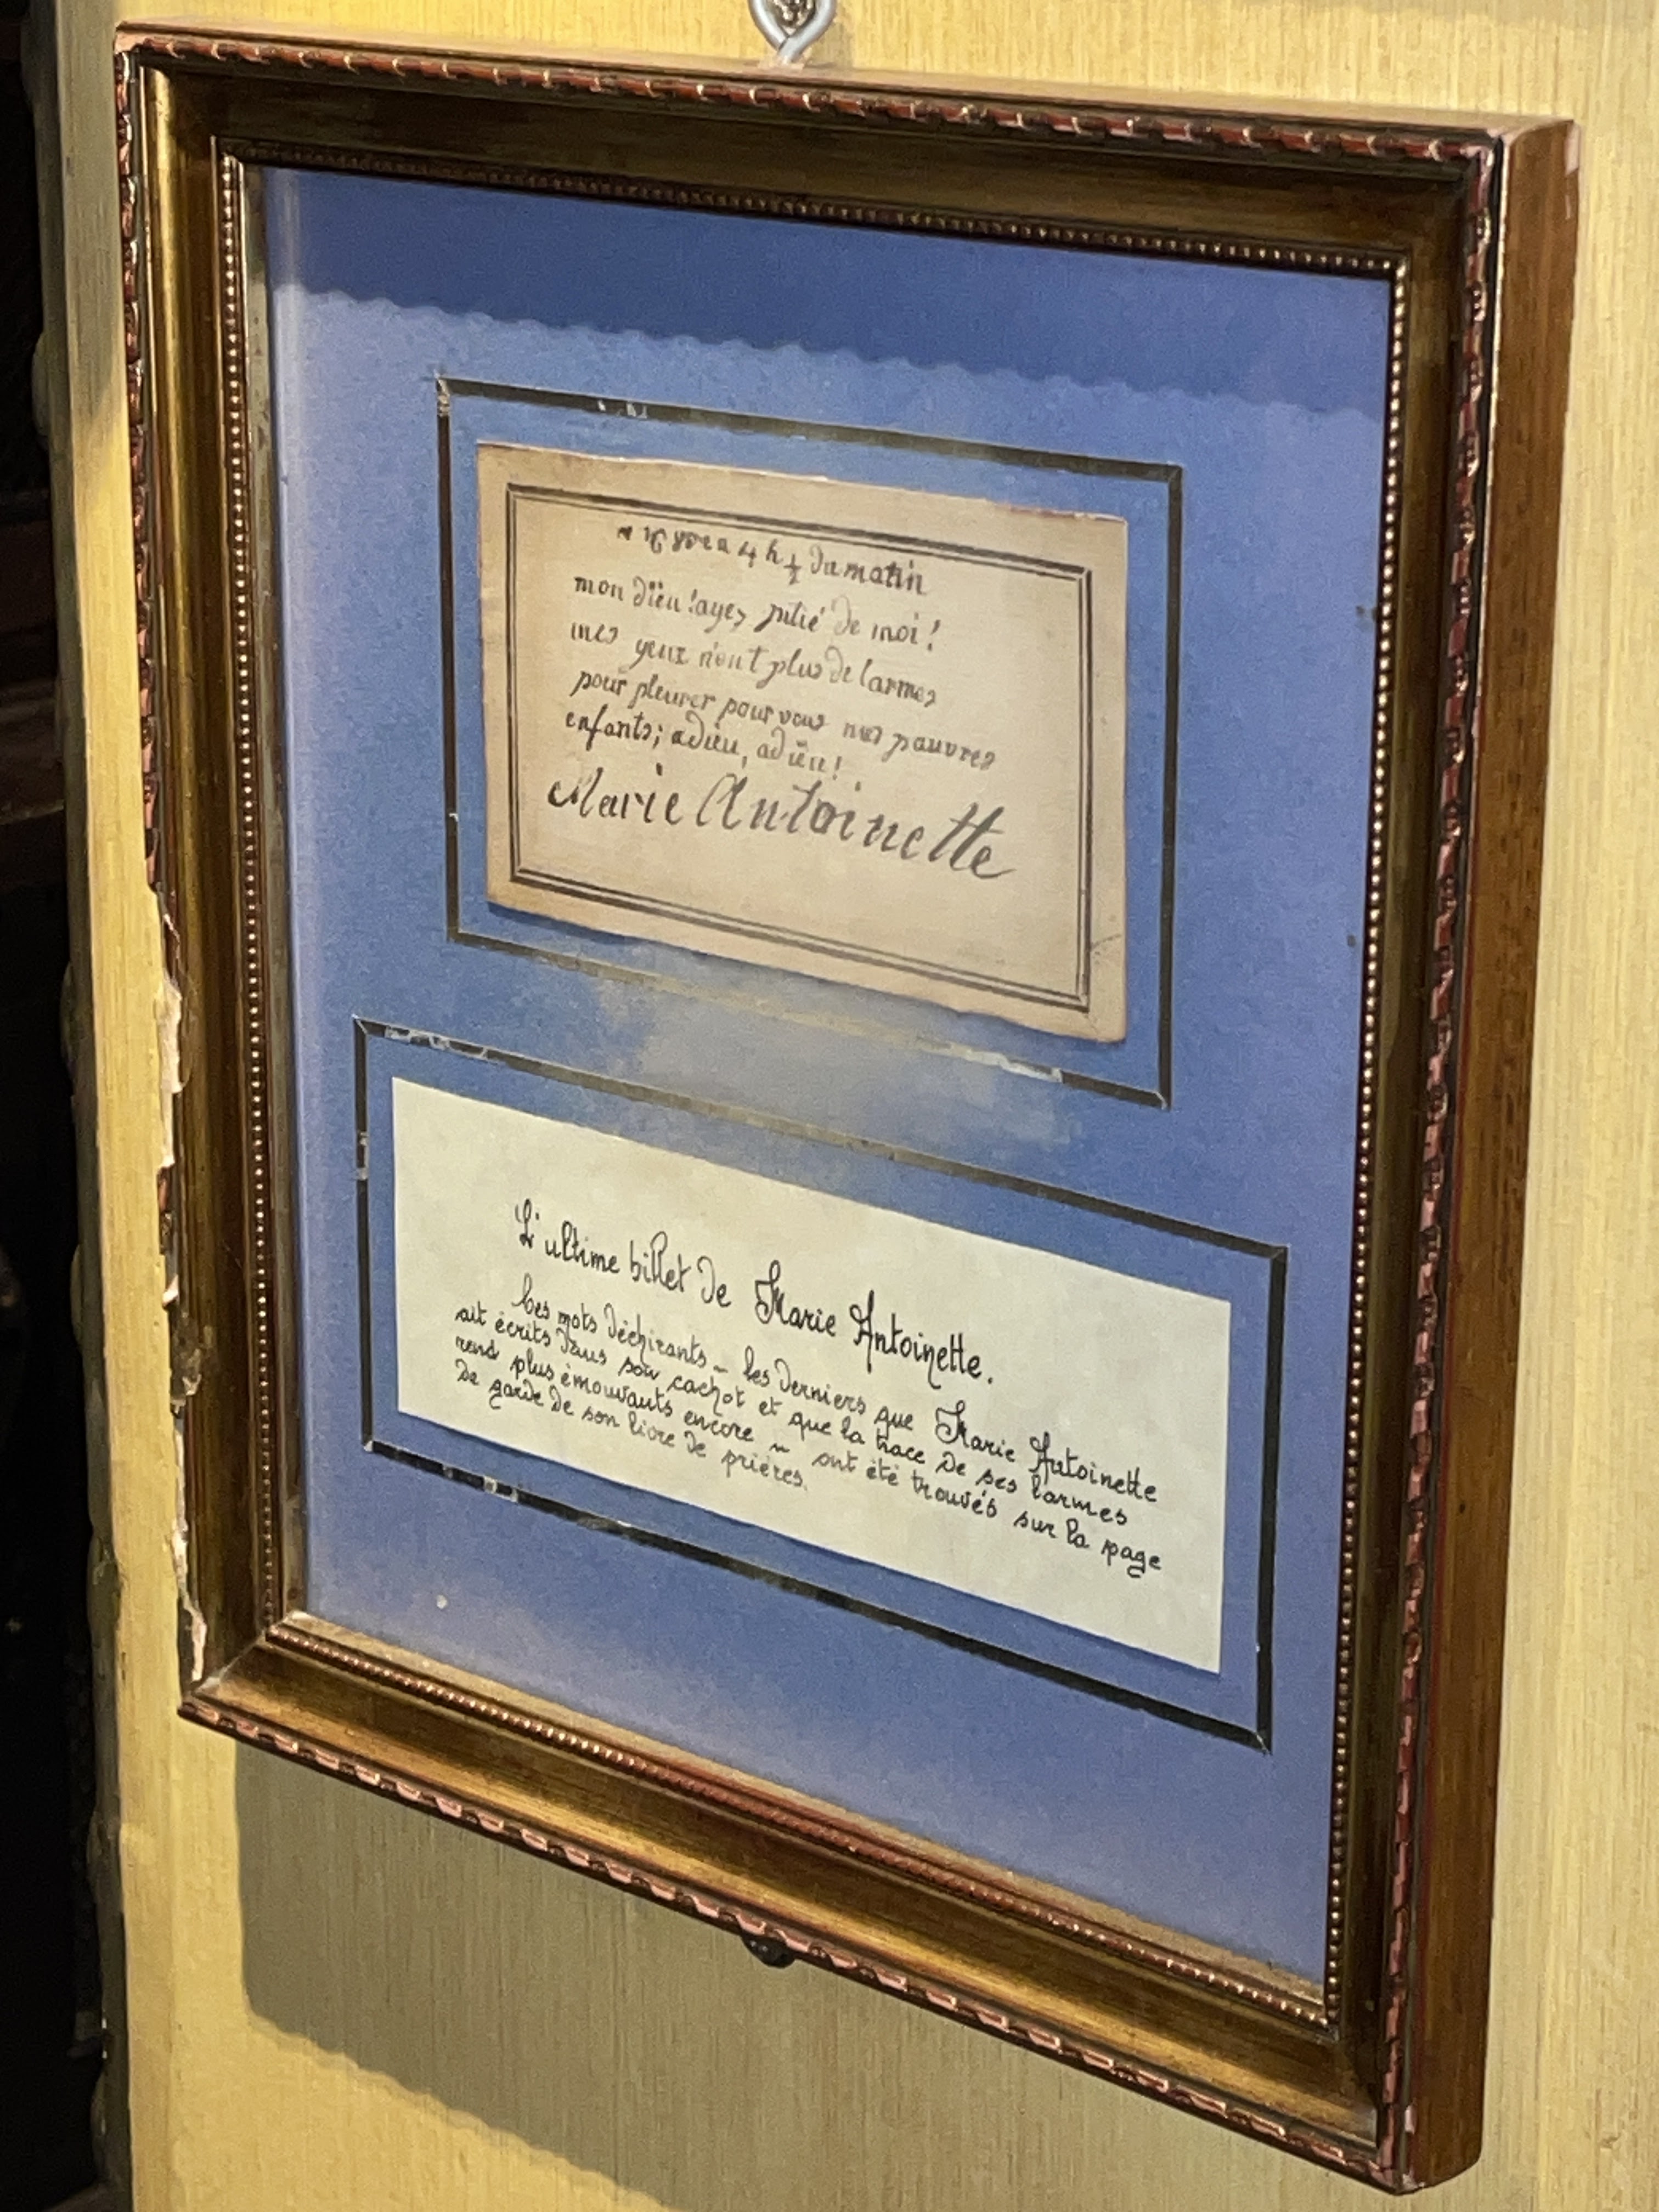 ce 16 8bre a 4 h ½ du matin
mon dïeu ! ayez pitié de moi !
mes yeux n'ont plus de larmes
pour pleurer pour vous mes pauvres
enfants; adïeu, adïeu!
Marie Antoinette
L'ultime billet de Marie Antoinette.
Ces mots déchirants - les derniers que Marie Antoinette
ait écrits dans son cachot et que la trace de ses larmes
rend plus émouvants encore - ont été trouvés sur la page
de garde de son livre de prières.